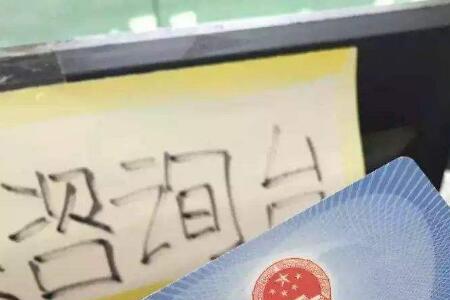 咨询台